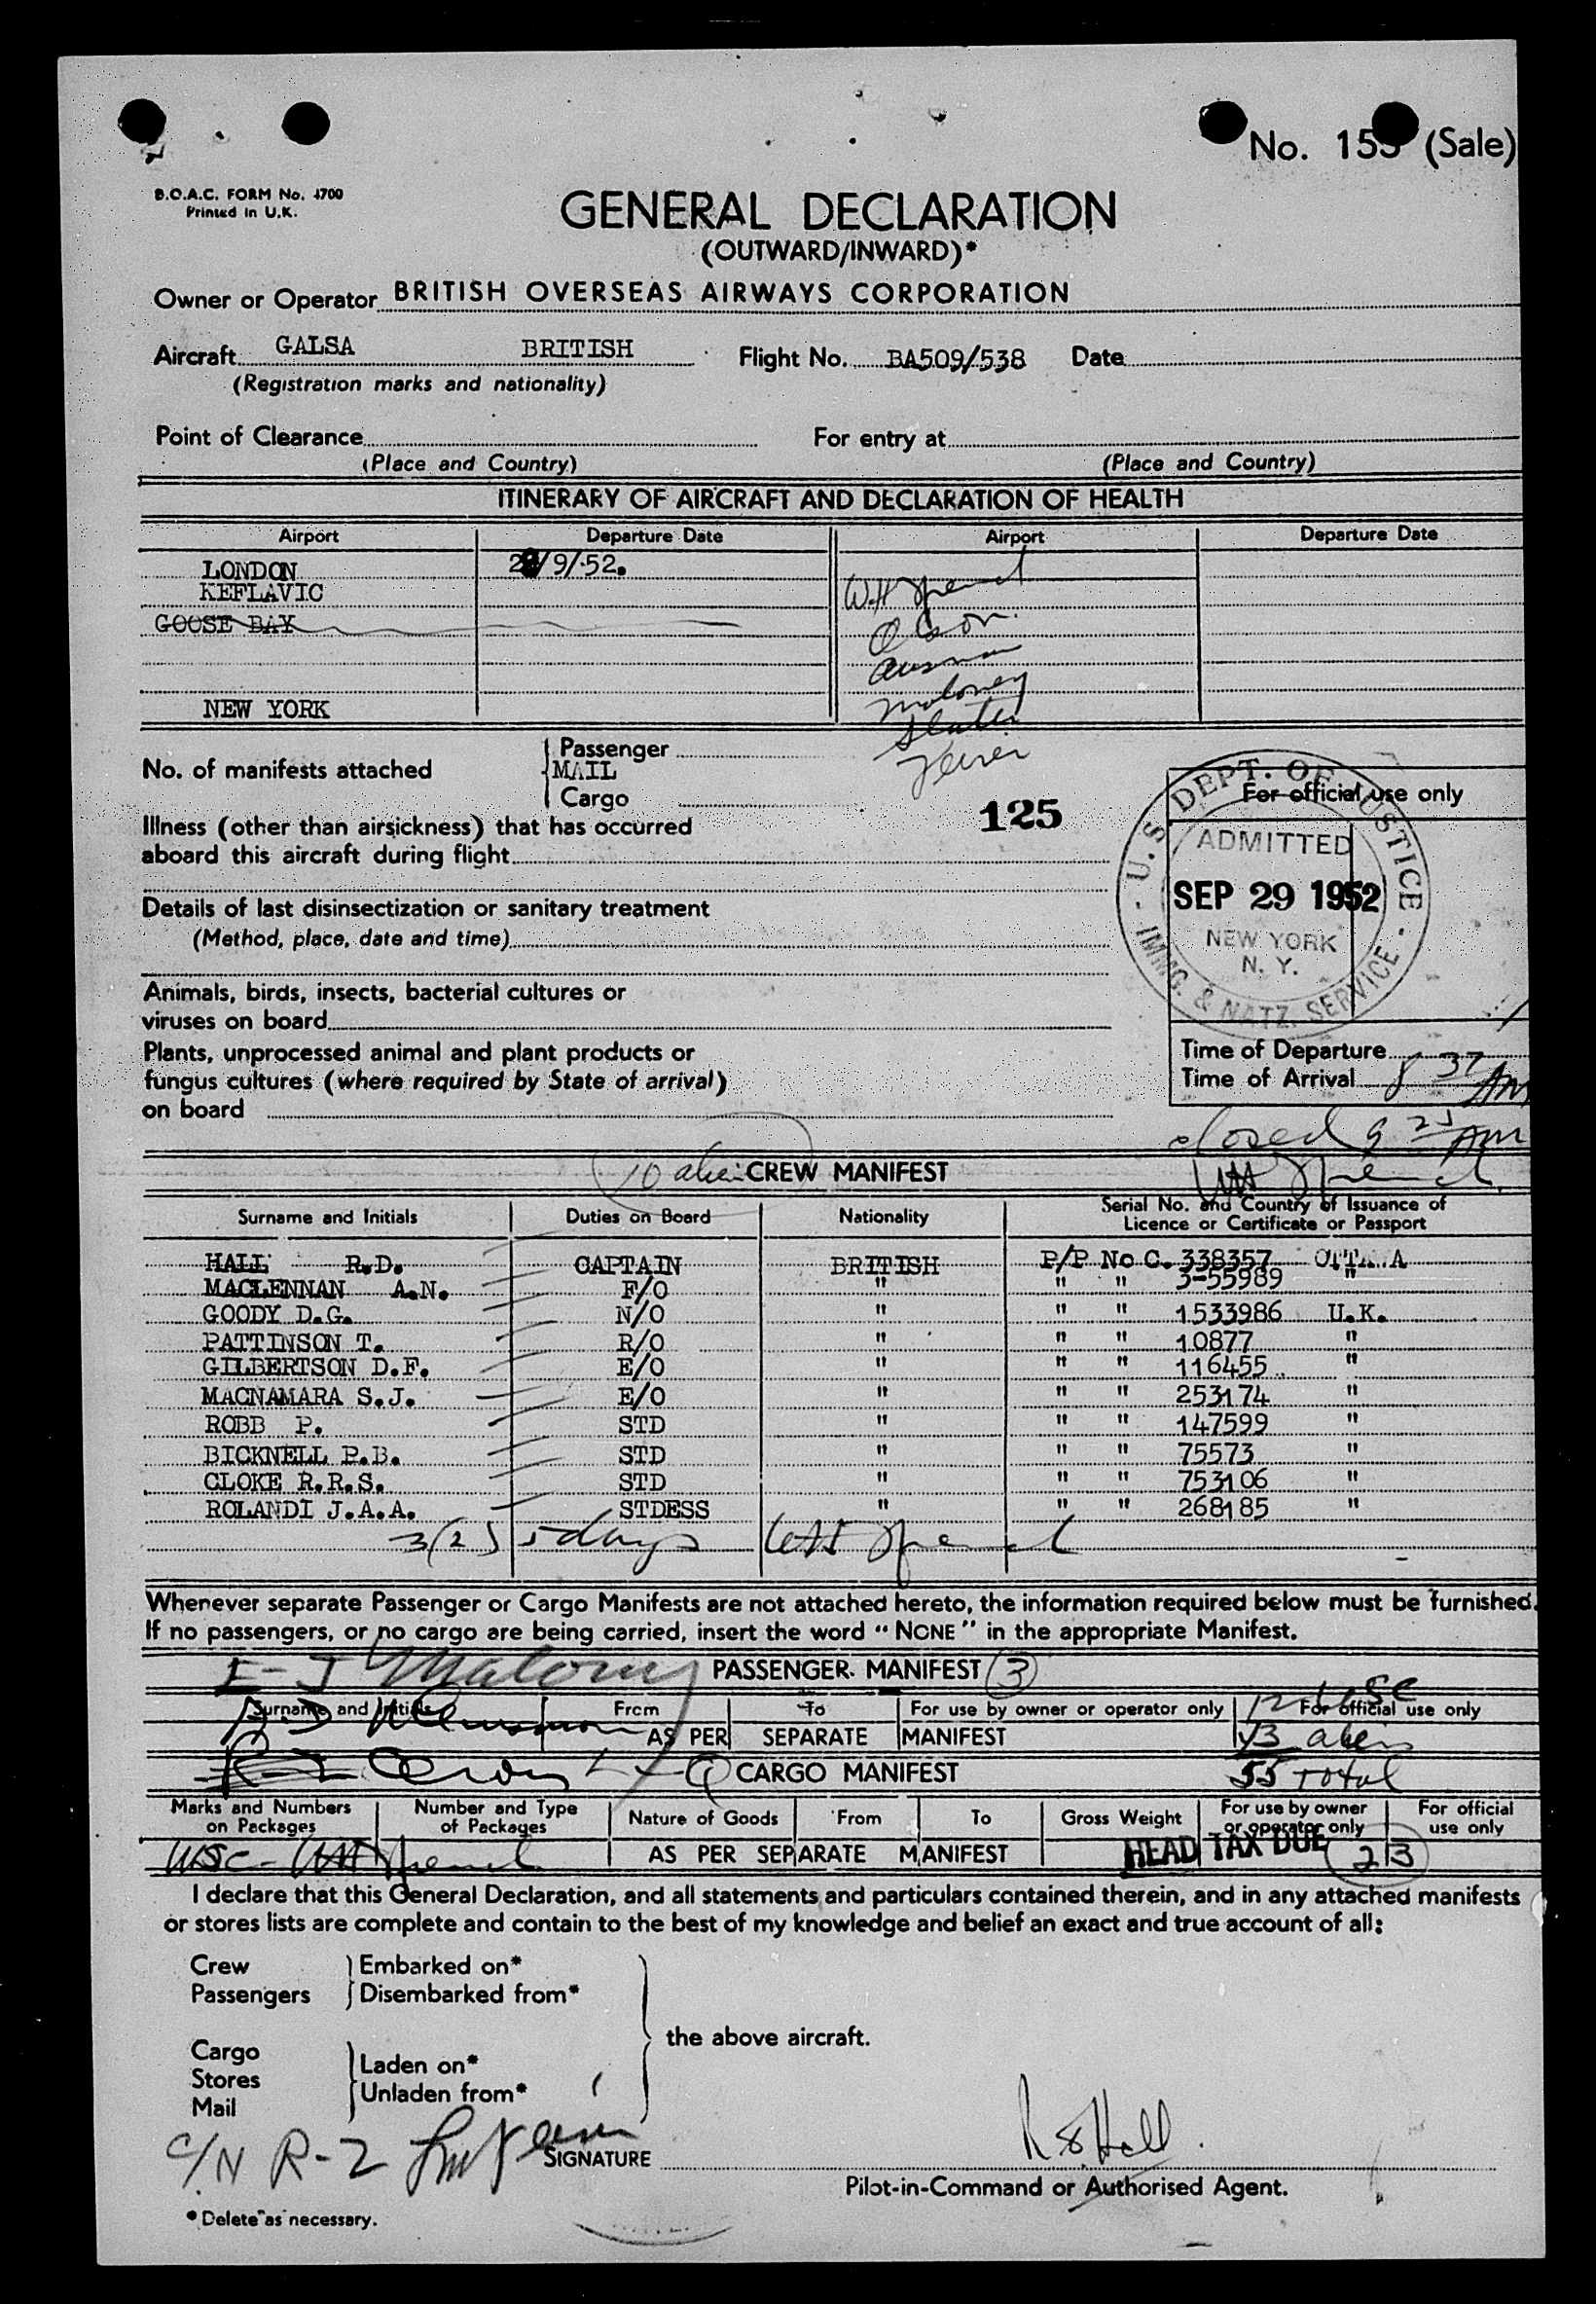 No. 155 (Sale)
B.O.A.C. FORM No. 4700
Printed in U.K.
GENERAL DECLARATION
(OUTWARD/INWARD)*
Owner or Operator BRITISH OVERSEAS AIRWAYS CORPORATION
Aircraft GALSA BRITISH Flight No. BA509/538 Date
(Registration marks and nationality)
Point of Clearance For entry at
(Place and Country) (Place and Country)
ITINERARY OF AIRCRAFT AND DECLARATION OF HEALTH
Airport Departure Date Airport Departure Date
LONDON /9/52.
KEFLAVIC
GOOSE BAY Olson
NEW YORK Moloney
No. of manifests attached
Passenger
MAIL
Cargo
125
For official use only
U.S. DEPT. OF JUSTICE
ADMITTED
SEP 29 1952
NEW YORK
N. Y.
IMMG. & NATZ. SERVICE
Illness (other than airsickness) that has occurred
aboard this aircraft during flight
Details of last disinsectization or sanitary treatment
(Method, place, date and time)
Animals, birds, insects, bacterial cultures or
viruses on board
Plants, unprocessed animal and plant products or
fungus cultures (where required by State of arrival)
on board
Time of Departure
Time of Arrival 8 37 AM
closed 9 25 AM
10 alien CREW MANIFEST
Surname and Initials Duties on Board Nationality Serial No. and Country of Issuance of
Licence or Certificate or Passport
HALL R.D. CAPTAIN BRITISH P/P No C. 338357 OTTAWA
MACLENNAN A.N. F/O " " " 3-55989 "
GOODY D.G. N/O " " " 1533986 U.K.
PATTINSON T. R/O " " " 10877 "
GILBERTSON D.F. E/O " " " 116455 "
MACNAMARA S.J. E/O " " " 253174 "
ROBB P. STD " " " 147599 "
BICKNELL P.B. STD " " " 75573 "
CLOKE R.R.S. STD " " " 753106 "
ROLANDI J.A.A. STDESS " " " 268185 "
3(2) 5 days
Whenever separate Passenger or Cargo Manifests are not attached hereto, the information required below must be furnished.
If no passengers, or no cargo are being carried, insert the word "NONE" in the appropriate Manifest.
PASSENGER MANIFEST 3
Surname and Initials From To For use by owner or operator only For official use only
12 USC
AS PER SEPARATE MANIFEST 43 alien
CARGO MANIFEST 55 total
Marks and Numbers on Packages Number and Type of Packages Nature of Goods From To Gross Weight For use by owner or operator only For official use only
AS PER SEPARATE MANIFEST HEAD TAX DUE 23
I declare that this General Declaration, and all statements and particulars contained therein, and in any attached manifests
or stores lists are complete and contain to the best of my knowledge and belief an exact and true account of all:
Crew
Passengers
Embarked on*
Disembarked from*
Cargo
Stores
Mail
Laden on*
Unladen from*
the above aircraft.
C/N R-2
SIGNATURE Hall
Pilot-in-Command or Authorised Agent.
* Delete as necessary.